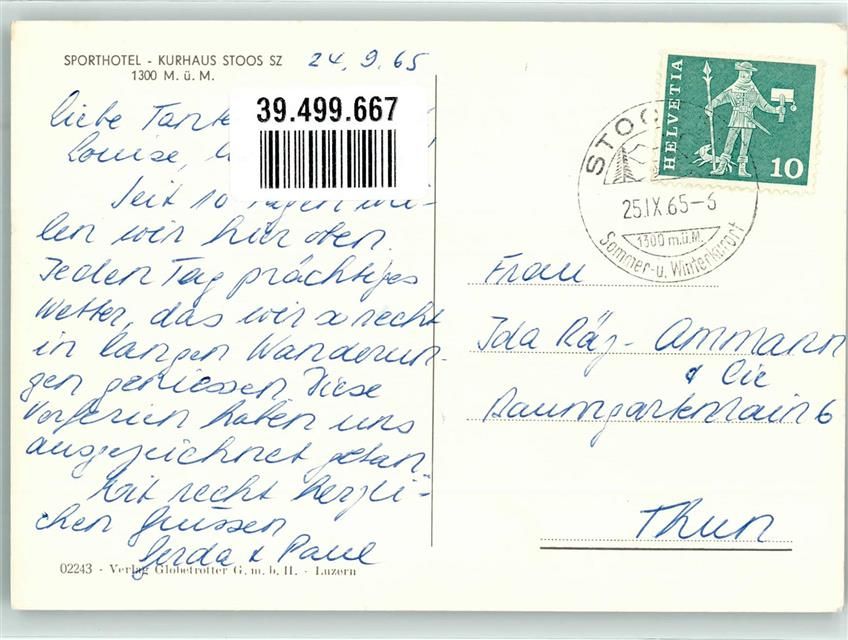 SPORTHOTEL - KURHAUS STOOS SZ
1300 M. ü. M.
24. 9. 65
39.499.667
liebe Tante
Louise,
Seit 10 Tagen wei-
len wir hier oben.
Jeden Tag prächtiges
Wetter, das wir so recht
in langen Wanderun-
gen geniessen. Diese
Vorferien haben uns
ausgezeichnet getan.
Mit recht herzli-
chen Grüssen
Gerda & Paul
02243 - Verlag Globetrotter G. m. b. H. - Luzern
HELVETIA
10
STOO
25.IX.65-6
1300 m.ü.M.
Sommer-u. Winterkurort
Frau
Ida Räz-Ammann
& Cie
Baumgartenrain 6
Thun